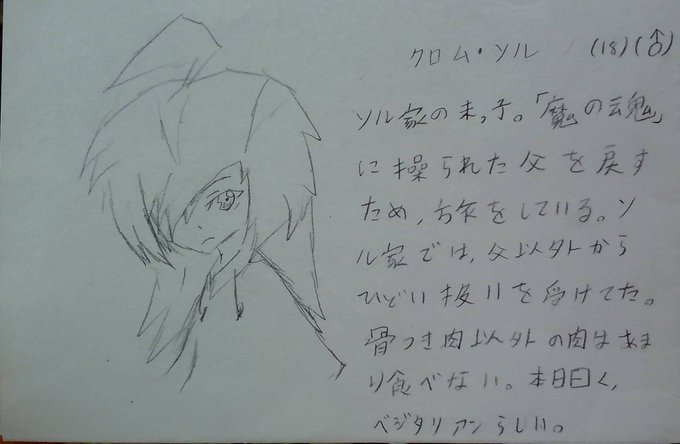 クロム・ソル (18)(♂)
ソル家の末っ子。「魔の魂」
に操られた父を戻す
ため、お旅をしている。ソ
ル家では、父以外から
ひどい扱いを受けてた。
骨つき肉以外の肉はあま
り食べない。本日曰く、
ベジタリアンらしい。